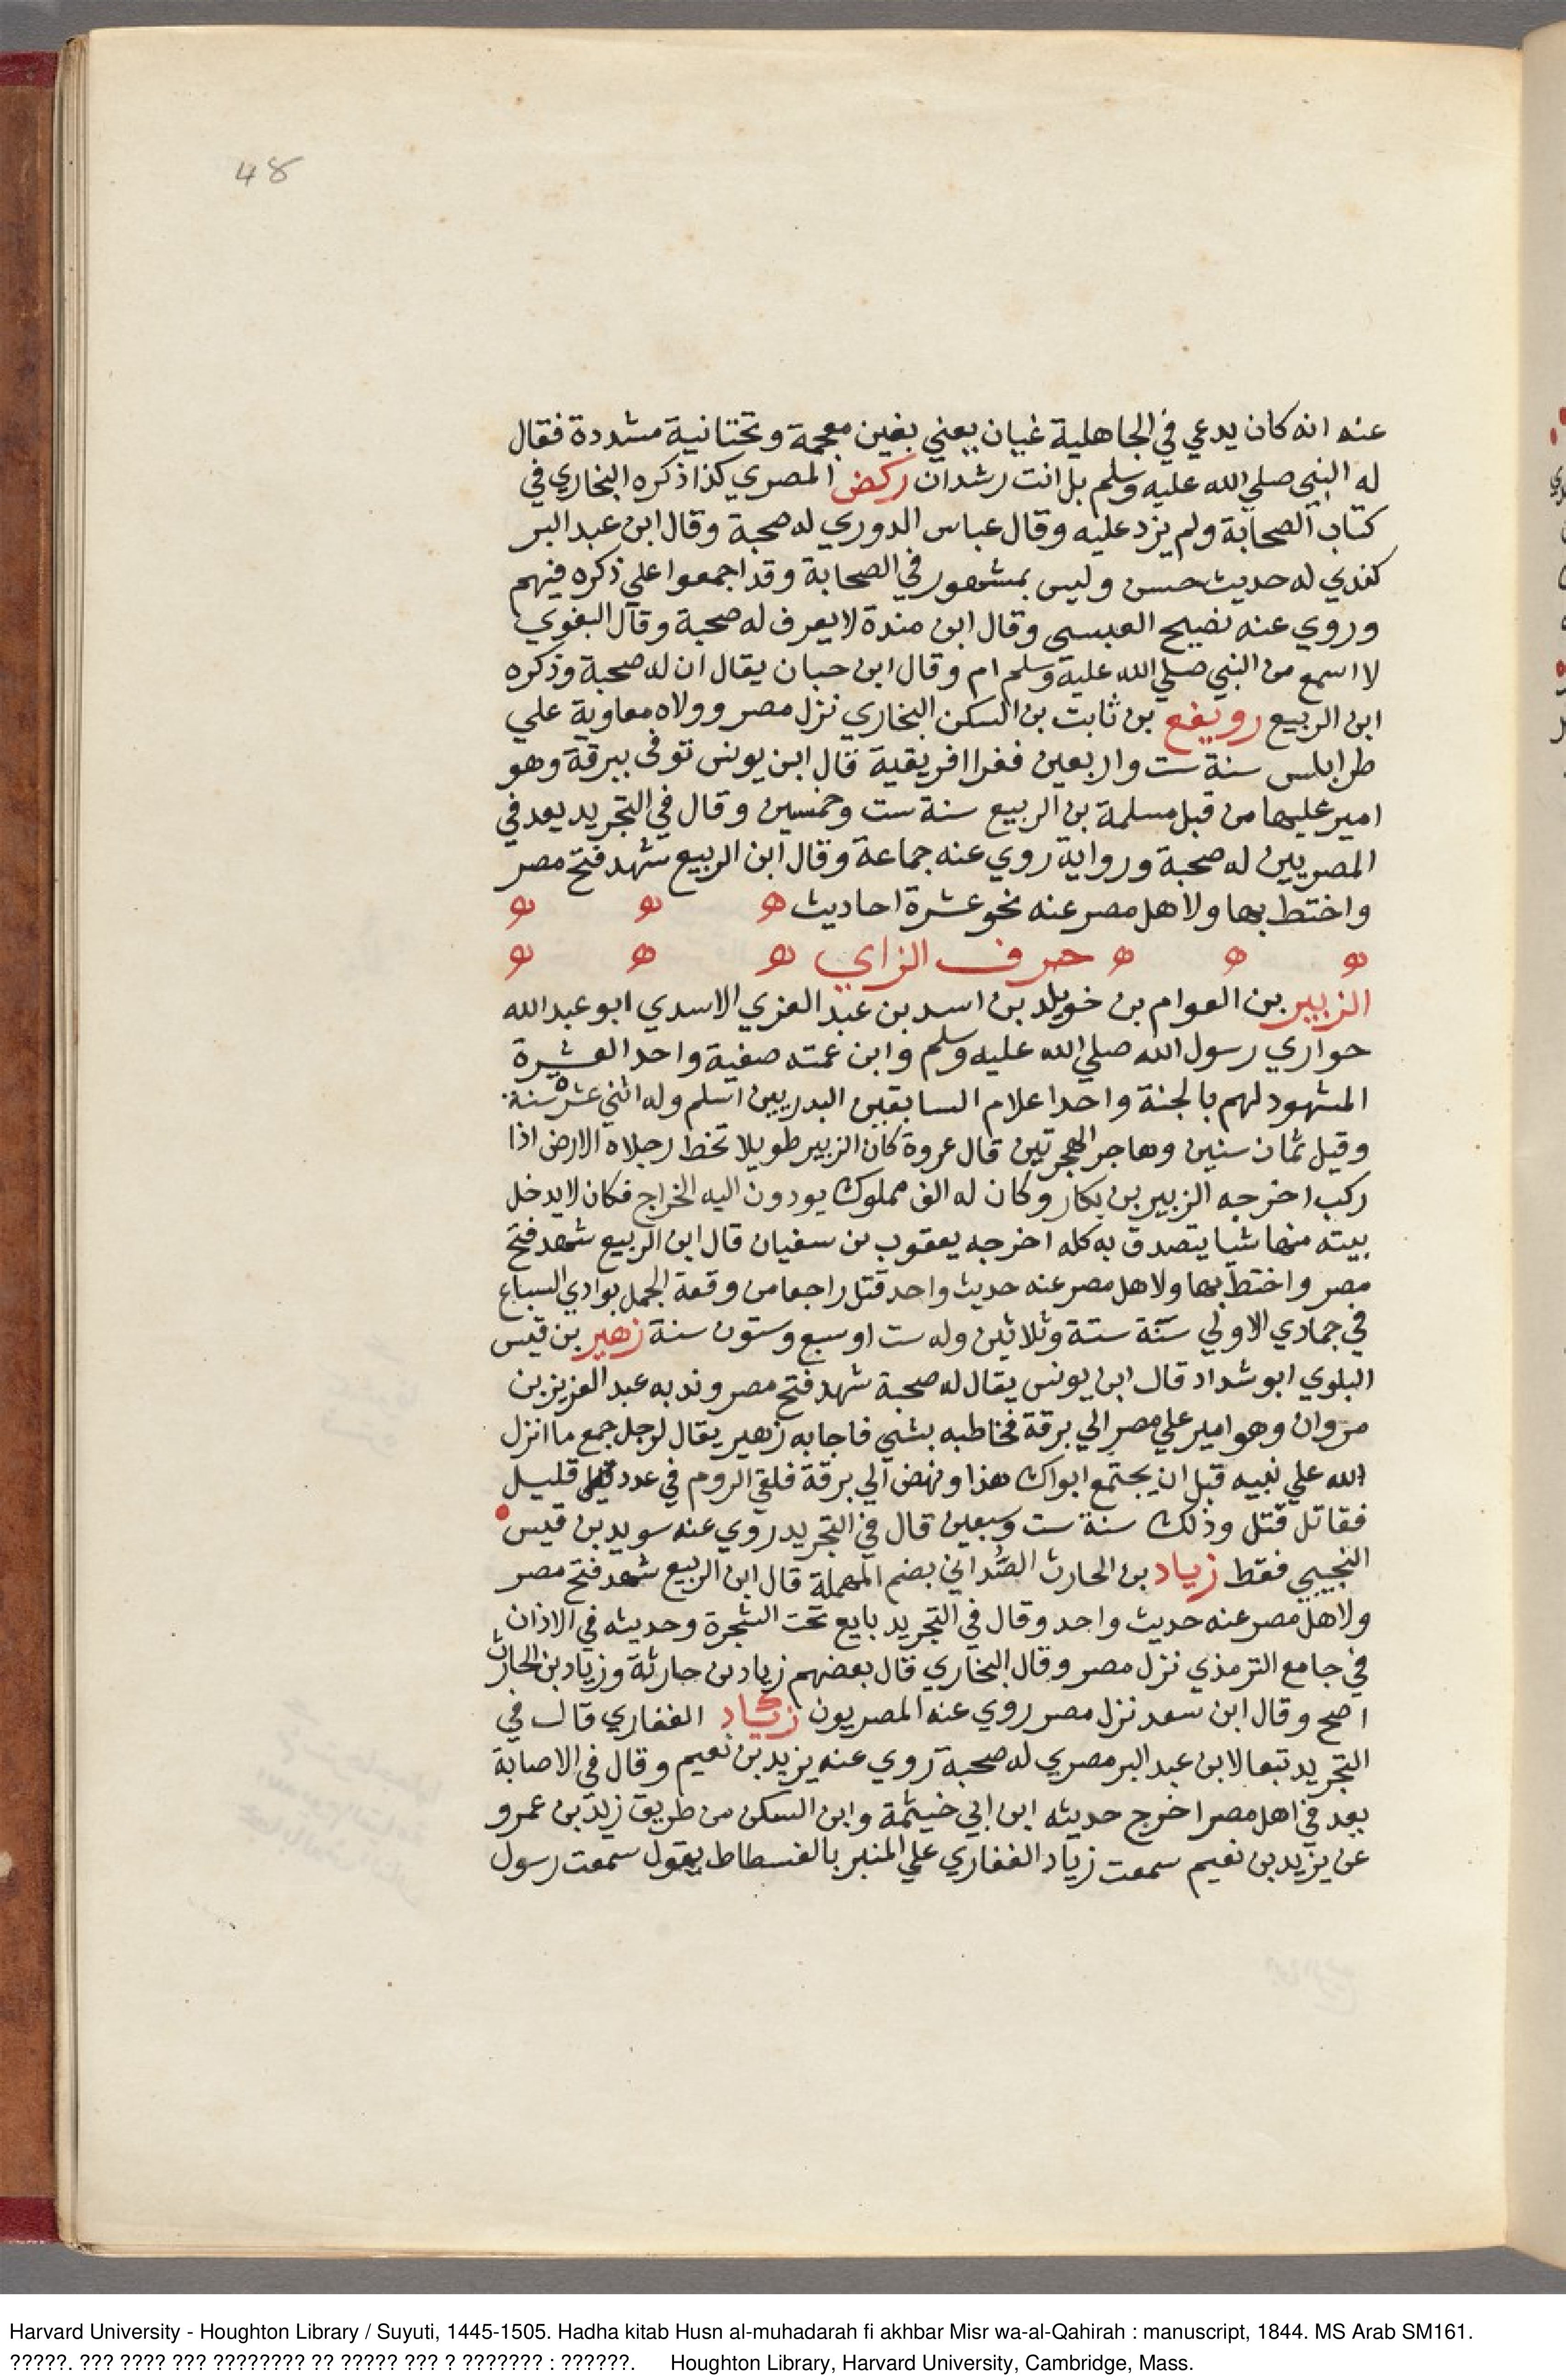 48
عنه انه كان يدعي في الجاهلية غيان يعني بغين معجمة وتحتانية مشددة فقال
له النبي صلي الله عليه وسلم بل انت رشدان ركض المصري كذا ذكره البخاري في
كتاب الصحابة ولم يزد عليه وقال عباس الدوري له صحبة وقال ابن عبد البر
كندي له حديث حسن وليس بمشهور في الصحابة وقد اجمعوا علي ذكره فيهم
وروي عنه نضيح العبسي وقال ابن مندة لا يعرف له صحبة وقال البغوي
لا اسمع من النبي صلي الله علية وسلم ام وقال ابن حبان يقال ان له صحبة وذكره
ابن الربيع رويفع بن ثابت بن السكن البخاري نزل مصر وولاه معاوية علي
طرابلس سنة ست واربعين فغزا افريقية قال ابن يونس توفى ببرقة وهو
امير عليها من قبل مسلمة بن الربيع سنة ست وخمسين وقال في التجريد يعد في
المصريين له صحبة ورواية روي عنه جماعة وقال ابن الربيع شهد فتح مصر
واختط بها ولاهل مصر عنه نحو عشرة احاديث ه ه ه
ه ه ه حرف الزاي ه ه ه
الزبير بن العوام بن خويلد بن اسد بن عبد العزي الاسدي ابو عبد الله
حواري رسول الله صلي الله عليه وسلم وابن عمته صفية واحد العشرة
المشهود لهم بالجنة واحد اعلام السابقين البدريين اسلم وله اثني عشرة سنة
وقيل ثمان سنين وهاجر الهجرتين قال عروة كان الزبير طويلا تخط رجلاه الارض اذا
ركب اخرجه الزبير بن بكار وكان له الف مملوك يودون اليه الخراج فكان لا يدخل
بيته منها شيا يتصدق به كله اخرجه يعقوب بن سفيان قال ابن الربيع شهد فتح
مصر واختط بها ولاهل مصر عنه حديث واحد قتل راجعا من وقعة الجمل بوادي السباع
في جمادي الاولي سنة ستة وثلاثين وله ست او سبع وستون سنة زهير بن قيس
البلوي ابو شداد قال ابن يونس يقال له صحبة شهد فتح مصر وندبه عبد العزيز بن
مروان وهو امير علي مصر الي برقة فخاطبه بشي فاجابه زهير يقال لرجل جمع ما انزل
الله علي نبيه قبل ان يجتمع ابواك هذا ونهض الي برقة فلقي الروم في عدد قليل
فقاتل قتل وذلك سنة ست وسبعين قال في التجريد روي عنه سويد بن قيس
التجيبي فقط زياد بن الحارث الصُّداني بضم المهملة قال ابن الربيع شهد فتح مصر
ولاهل مصر عنه حديث واحد وقال في التجريد بايع تحت الشجرة وحديثه في الاذان
في جامع الترمذي نزل مصر وقال البخاري قال بعضهم زياد بن حارثة وزياد بن الحارث
اصح وقال ابن سعد نزل مصر روي عنه المصريون زياد الغفاري قال في
التجريد تبعا لابن عبد البر مصري له صحبة روي عنه يزيد بن نعيم وقال في الاصابة
يعد في اهل مصر اخرج حديثه ابن ابي خيثمة وابن السكن من طريق زيد بن عمرو
عن يزيد بن نعيم سمعت زياد الغفاري علي المنبر بالفسطاط يقول سمعت رسول
Harvard University - Houghton Library / Suyuti, 1445-1505. Hadha kitab Husn al-muhadarah fi akhbar Misr wa-al-Qahirah : manuscript, 1844. MS Arab SM161.
?????. ??? ???? ??? ???????? ?? ????? ??? ? ??????? : ??????. Houghton Library, Harvard University, Cambridge, Mass.